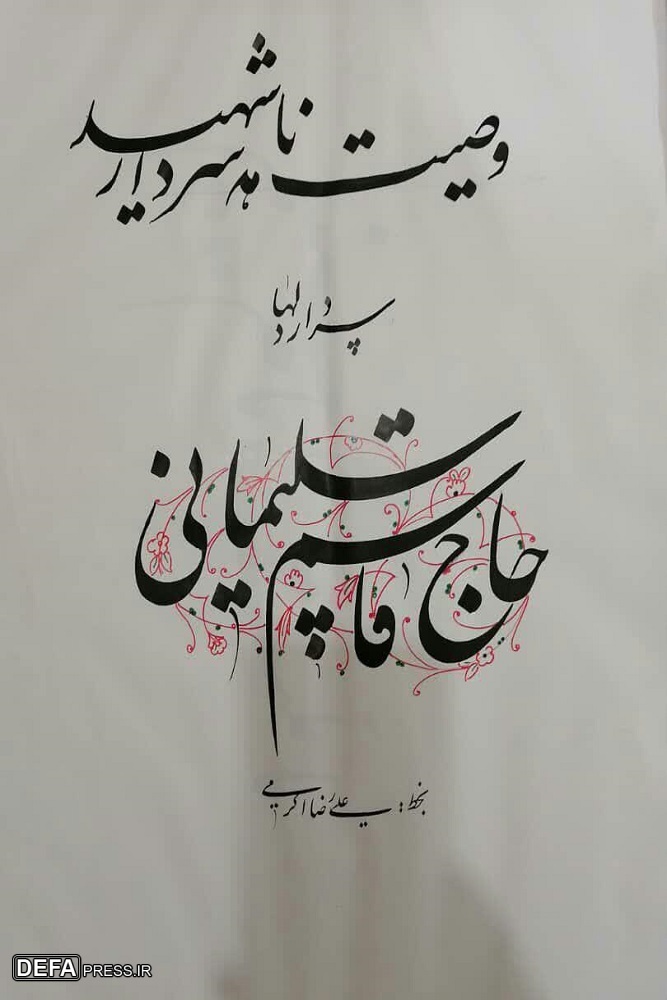 وصیت نامه سردار شهید
سردار دلها
حاج قاسم سلیمانی
بخط: علیرضا اکرمی
DEFAPRESS.IR